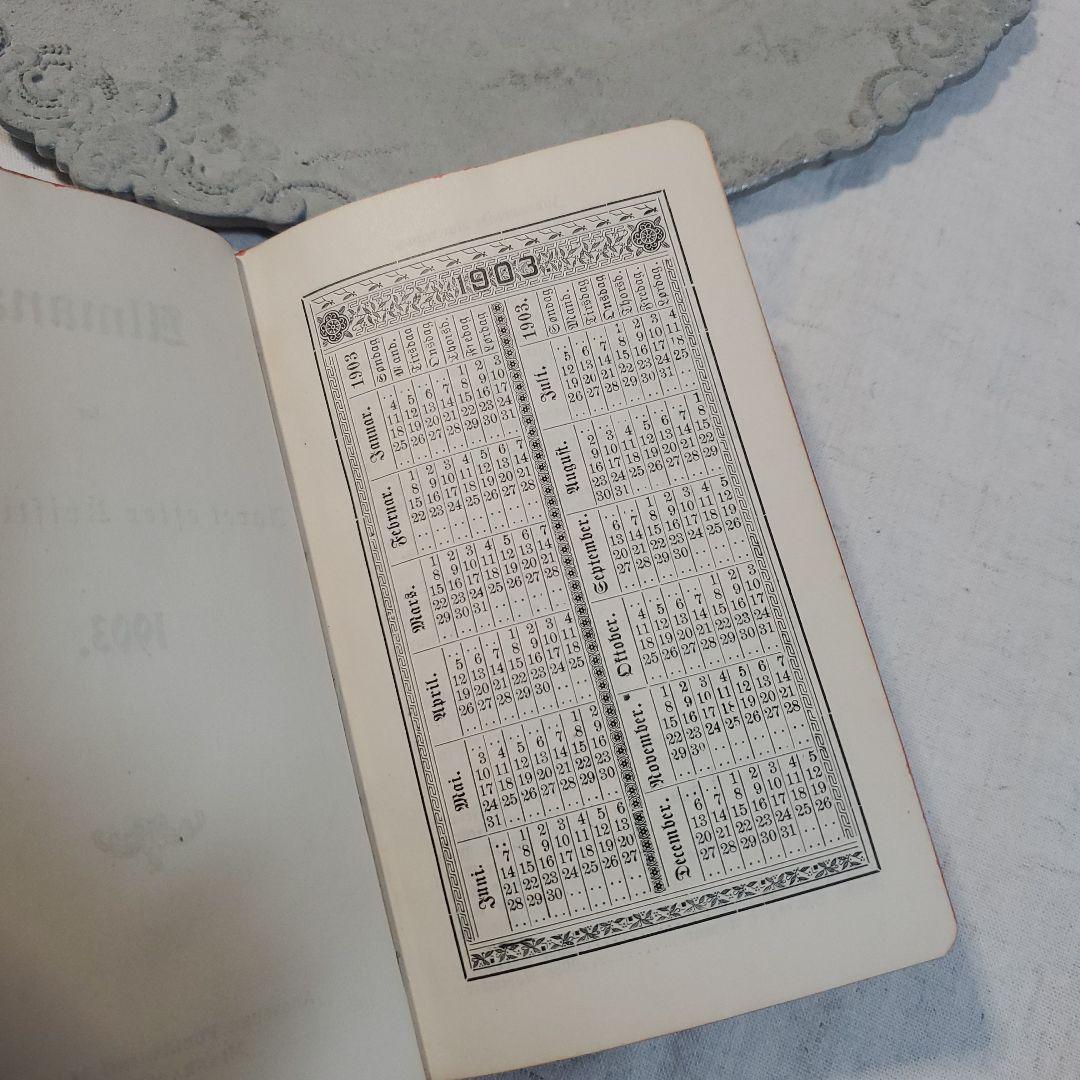 Almana
Aaret efter Kristi
1903.
1903.
1903 Søndag Mand. Tirsdag Onsdag Thorsd. Fredag Lørdag
Januar.
.. .. .. .. 1 2 3
4 5 6 7 8 9 10
11 12 13 14 15 16 17
18 19 20 21 22 23 24
25 26 27 28 29 30 31
Februar.
1 2 3 4 5 6 7
8 9 10 11 12 13 14
15 16 17 18 19 20 21
22 23 24 25 26 27 28
Mars.
1 2 3 4 5 6 7
8 9 10 11 12 13 14
15 16 17 18 19 20 21
22 23 24 25 26 27 28
29 30 31 .. .. .. ..
April.
.. .. .. 1 2 3 4
5 6 7 8 9 10 11
12 13 14 15 16 17 18
19 20 21 22 23 24 25
26 27 28 29 30 .. ..
Mai.
.. .. .. .. .. 1 2
3 4 5 6 7 8 9
10 11 12 13 14 15 16
17 18 19 20 21 22 23
24 25 26 27 28 29 30
31 .. .. .. .. .. ..
Juni.
.. 1 2 3 4 5 6
7 8 9 10 11 12 13
14 15 16 17 18 19 20
21 22 23 24 25 26 27
28 29 30 .. .. .. ..
1903. Søndag Mand. Tirsdag Onsdag Thorsd. Fredag Lørdag
Juli.
.. .. .. 1 2 3 4
5 6 7 8 9 10 11
12 13 14 15 16 17 18
19 20 21 22 23 24 25
26 27 28 29 30 31 ..
August.
.. .. .. .. .. .. 1
2 3 4 5 6 7 8
9 10 11 12 13 14 15
16 17 18 19 20 21 22
23 24 25 26 27 28 29
30 31 .. .. .. .. ..
September.
.. .. 1 2 3 4 5
6 7 8 9 10 11 12
13 14 15 16 17 18 19
20 21 22 23 24 25 26
27 28 29 30 .. .. ..
Oktober.
.. .. .. .. 1 2 3
4 5 6 7 8 9 10
11 12 13 14 15 16 17
18 19 20 21 22 23 24
25 26 27 28 29 30 31
November.
1 2 3 4 5 6 7
8 9 10 11 12 13 14
15 16 17 18 19 20 21
22 23 24 25 26 27 28
29 30 .. .. .. .. ..
December.
.. .. 1 2 3 4 5
6 7 8 9 10 11 12
13 14 15 16 17 18 19
20 21 22 23 24 25 26
27 28 29 30 31 .. ..